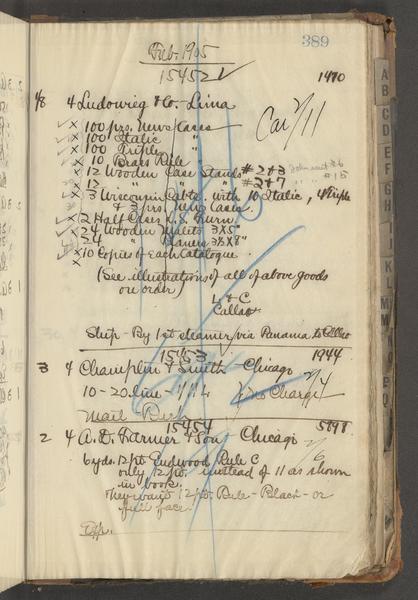 389
Feb. 1905
15452 1470
4/8 4 Ludowieg & Co. Lima
100 prs. News Cases Car 2/11
100 Italic "
100 Triple "
10 Brass Rule "
12 Wooden Case Stands #2+3
12 " " " #2+7
3 Wisconsin Cabts. with 10 Italic, 4 Triple
& 3 prs. News Cases.
2 Half Cases L.S. Furn
24 Wooden Mallets 3 x 5"
24 " Planers 3½ x 8"
10 Copies of Each Catalogue
(See illustrations of all of above goods
on order)
L & C
Callao
Ship - By 1st steamer via Panama to Callao
15453 1944
3 4 Champlin & Smith Chicago 2/4
10-20 line - No Charge
Mail
15454 5498
2 4 A. D. Farmer & Son Chicago 2/6
6 yds. 12pt. Endwood Rule C
only 12 pt. instead of 11 as shown
in book.
They want 12pt. Rule - Black - or
full face.
Exp.
A
B
C
D
E
F
G
H
J
K
L
M
N
O
P